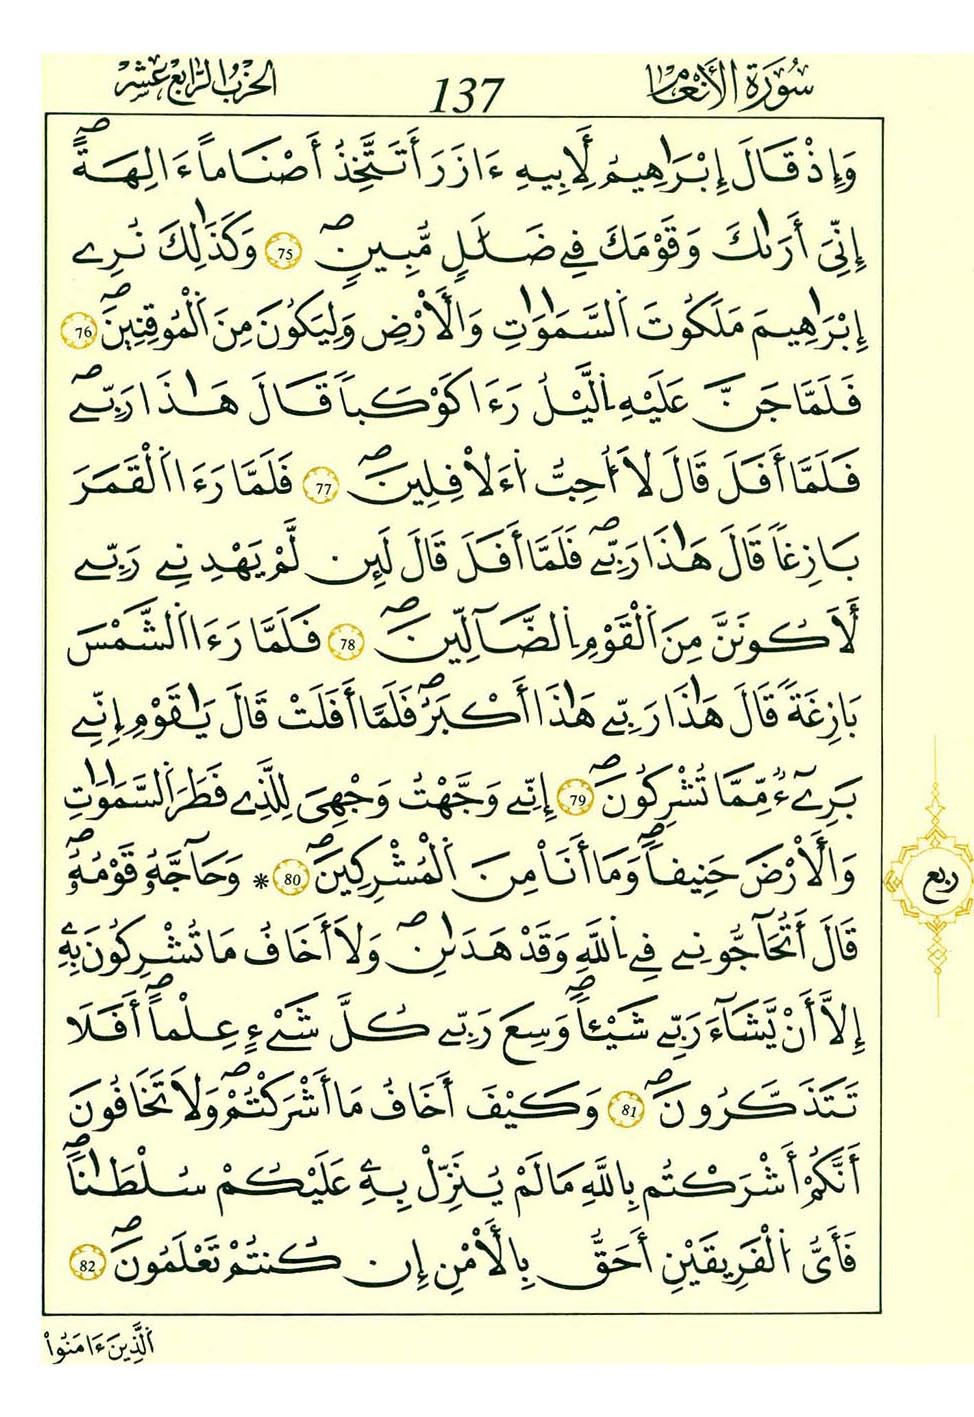 سُورَةُ الْأَنْعَامِ
137
الحِزْبُ الرَّابِعَ عَشَرَ
وَإِذْ قَالَ إِبْرَٰهِيمُ لِأَبِيهِ ءَازَرَ أَتَتَّخِذُ أَصْنَاماً ءَالِهَةًۖ
إِنِّيَ أَرَىٰكَ وَقَوْمَكَ فِے ضَلَٰلٖ مُّبِينٖۖ 75 وَكَذَٰلِكَ نُرِے
إِبْرَٰهِيمَ مَلَكُوتَ اَ۬لسَّمَٰوَٰتِ وَالْأَرْضِ وَلِيَكُونَ مِنَ اَ۬لْمُوقِنِينَۖ 76
فَلَمَّا جَنَّ عَلَيْهِ اِ۬ليْلُ رَءَا كَوْكَباٗ قَالَ هَٰذَا رَبِّےۖ
فَلَمَّا أَفَلَ قَالَ لَا أُحِبُّ اُ۬ءَلَافِلِينَۖ 77 فَلَمَّا رَءَا اَ۬لْقَمَرَ
بَازِغاٗ قَالَ هَٰذَا رَبِّےۖ فَلَمَّا أَفَلَ قَالَ لَئِن لَّمْ يَهْدِنِے رَبِّے
لَأَكُونَنَّ مِنَ اَ۬لْقَوْمِ اِ۬لضَّآلِّينَۖ 78 فَلَمَّا رَءَا اَ۬لشَّمْسَ
بَازِغَةٗ قَالَ هَٰذَا رَبِّے هَٰذَا أَكْبَرُۖ فَلَمَّا أَفَلَتْ قَالَ يَٰقَوْمِ إِنِّے
بَرِےٓءٞ مِّمَّا تُشْرِكُونَۖ 79 إِنِّے وَجَّهْتُ وَجْهِيَ لِلَّذِے فَطَرَ اَ۬لسَّمَٰوَٰتِ
وَالْأَرْضَ حَنِيفاٗۖ وَمَا أَنَا مِنَ اَ۬لْمُشْرِكِينَۖ 80 * وَحَآجَّهُۥ قَوْمُهُۥۖ
قَالَ أَتُحَٰٓجُّونِے فِے اِ۬للَّهِ وَقَدْ هَدَىٰنِۦۖ وَلَا أَخَافُ مَا تُشْرِكُونَ بِهِۦ
إِلَّا أَنْ يَّشَآءَ رَبِّے شَيْـٔاٗۖ وَسِعَ رَبِّے كُلَّ شَےْءٍ عِلْماًۖ أَفَلَا
تَتَذَكَّرُونَۖ 81 وَكَيْفَ أَخَافُ مَا أَشْرَكْتُمْۖ وَلَا تَخَافُونَ
أَنَّكُمْ أَشْرَكْتُم بِاللَّهِ مَا لَمْ يُنَزِّلْ بِهِۦ عَلَيْكُمْ سُلْطَٰناٗۖ
فَأَيُّ اُ۬لْفَرِيقَيْنِ أَحَقُّ بِالْأَمْنِ إِن كُنتُمْ تَعْلَمُونَۖ 82
ربع
اَ۬لَّذِينَ ءَامَنُواْ